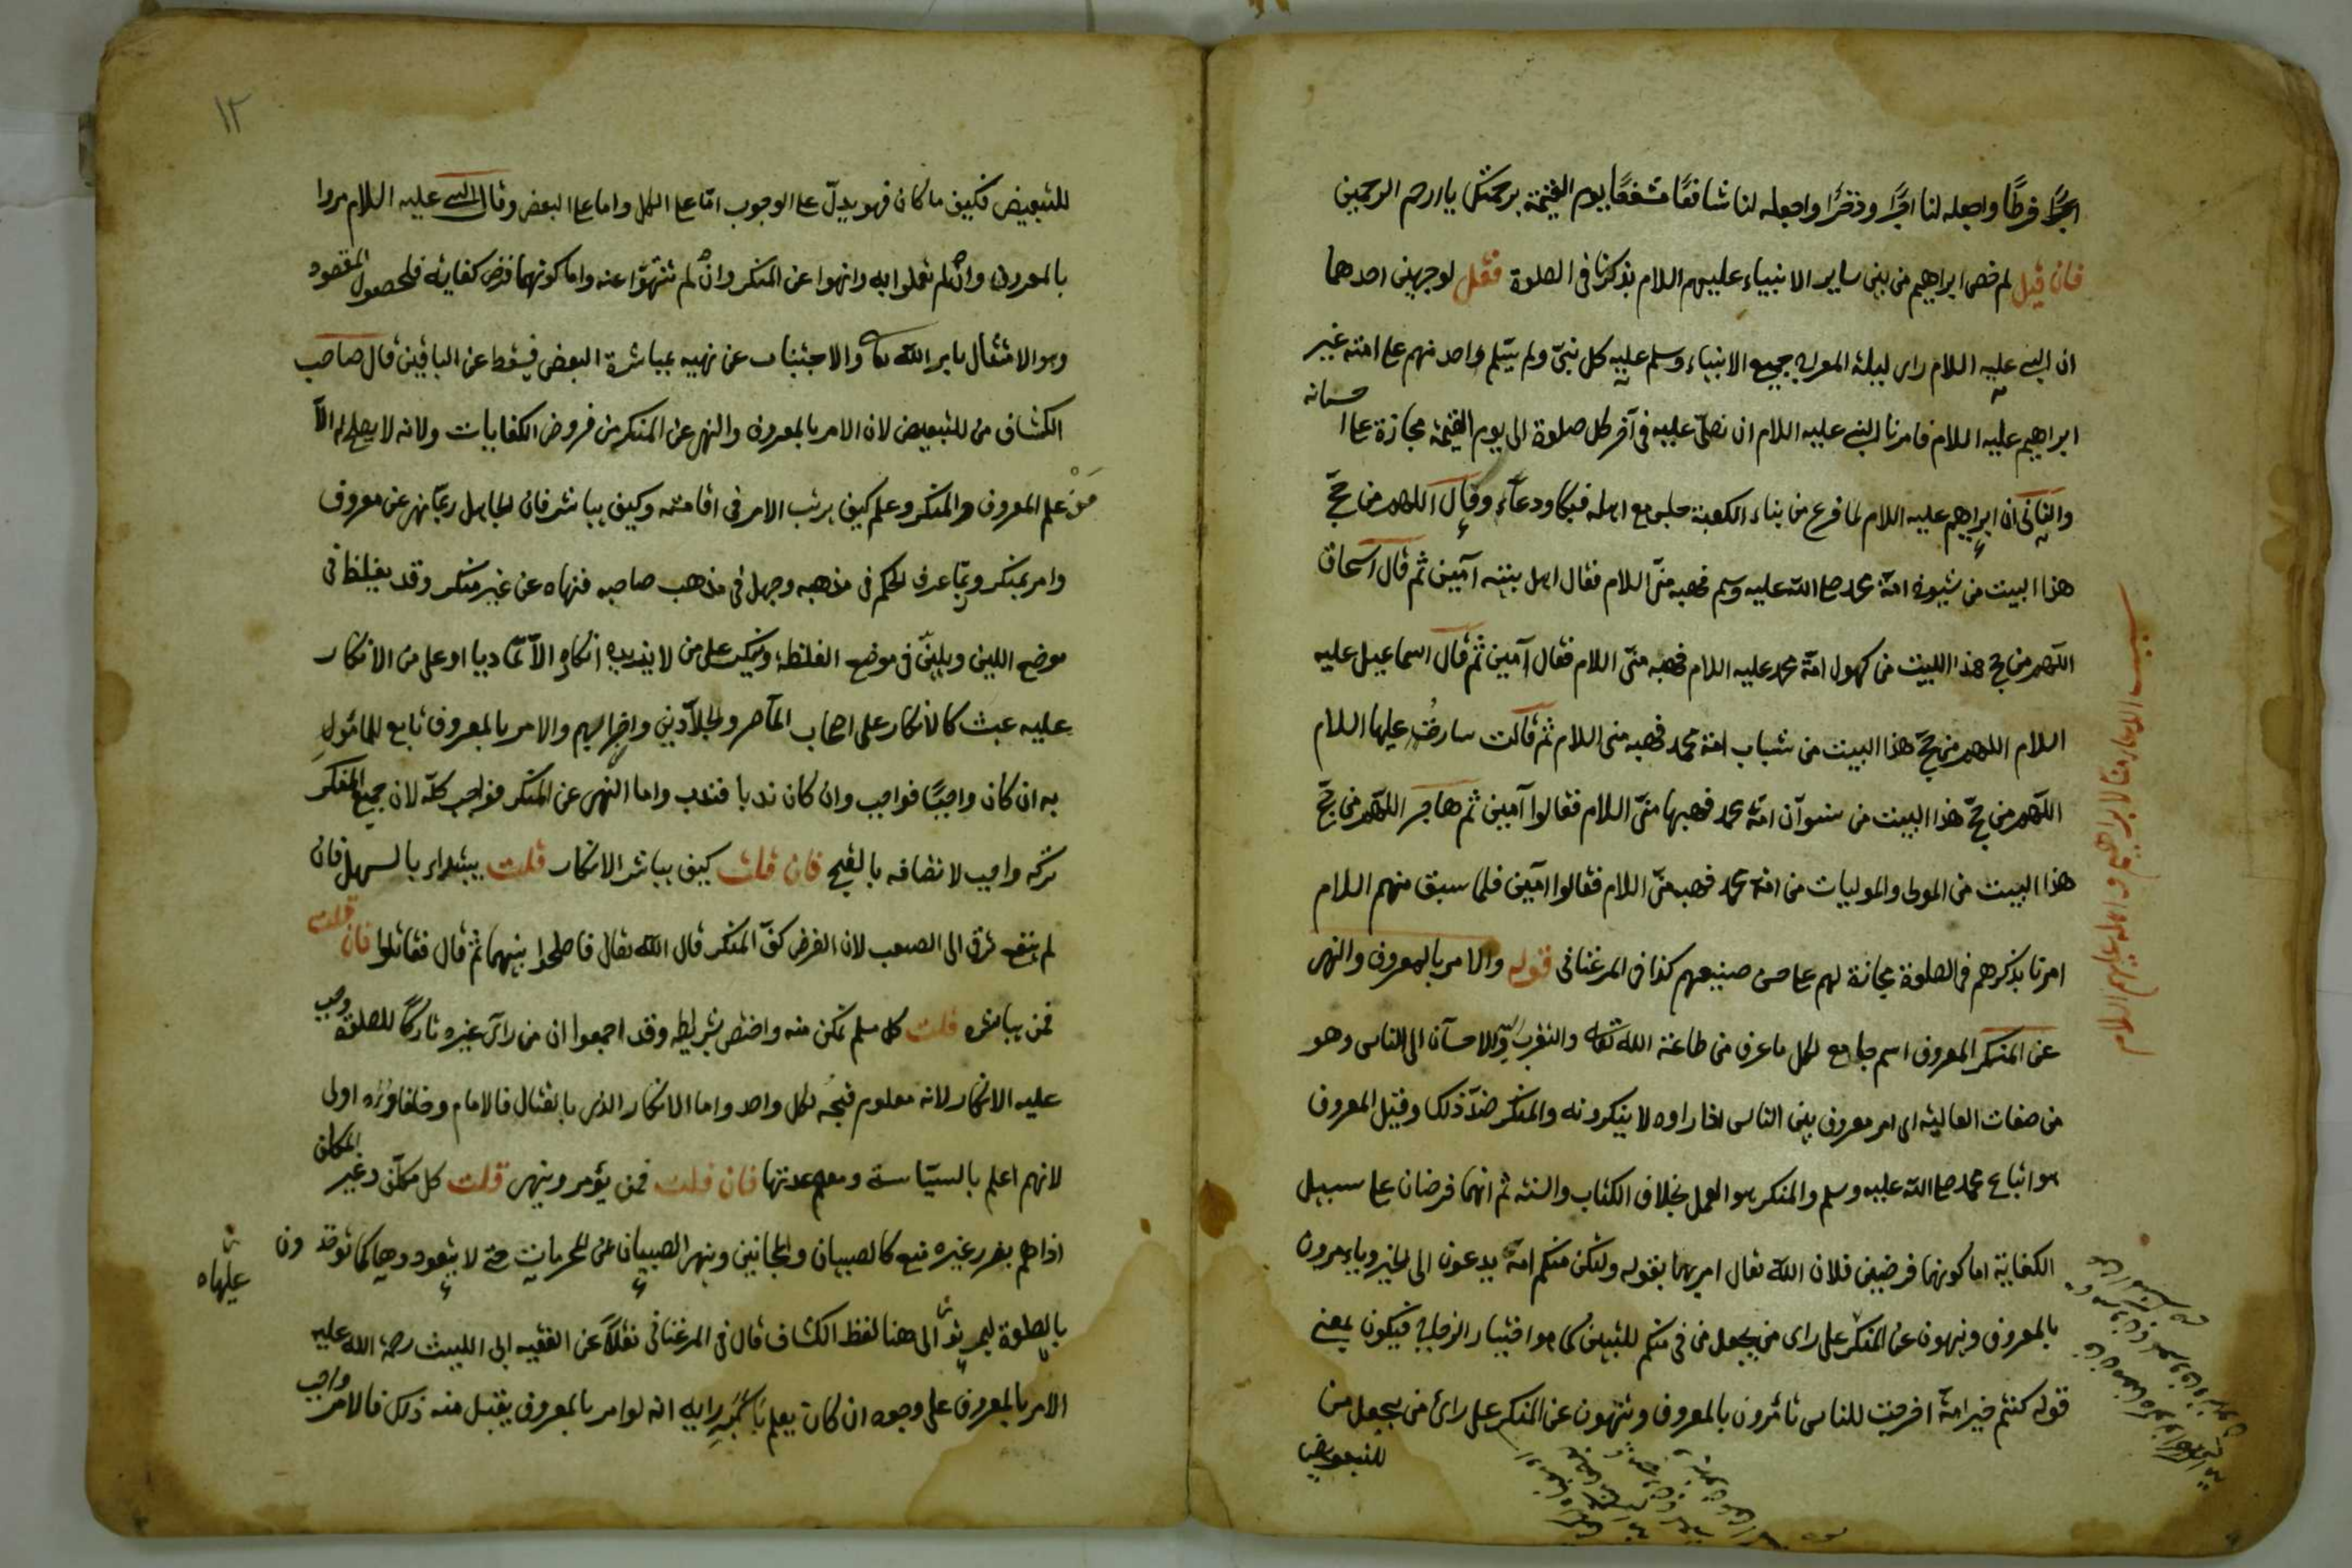 اجرًا فرطًا واجعله لنا اجرًا وذخرًا واجعله لنا شافعًا مشفعًا يوم القيمة برحمتك يا ارحم الرحمين
فان قيل لم خص ابراهيم من بين ساير الانبياء عليهم اللام بذكرنا فى الصلوة فقل لوجهين احدهما
ان النبى عليه اللام راى ليلة المعراج جميع الانبياء وسلم عليه كل نبىّ ولم يسلم واحد منهم على امته غير
ابراهيم عليه اللام فامرنا النبى عليه اللام ان نصلّى عليه فى آخر كل صلوة الى يوم القيمة مجازة على احسانه
والثانى ان ابراهيم عليه اللام لما فرغ من بناء الكعبة جلس مع اهله فبكا ودعاء وقال اللهم من حجّ
هذا البيت من شيوخ امة محمد صلى الله عليه وسلم فهبه منّى اللام فقال اهل بيته آمين ثم قال اسحاق
اللهم من حج هذا البيت من كهول امة محمد عليه اللام فهبه منّى اللام فقال آمين ثم قال اسماعيل عليه
اللام اللهم من حجّ هذا البيت من شباب امة محمد فهبه منى اللام ثم قالت سارة عليها اللام
اللهم من حجّ هذا البيت من نسوان امة محمد فهبها منّى اللام فقالوا آمين ثم هاجر اللهم من حجّ
هذا البيت من الموالى والموليات من امة محمد فهبه منّى اللام فقالوا آمين فلما سبق منهم اللام
امرنا بذكرهم فى الصلوة مجازة لهم على حسن صنيعهم كذا فى المرغنانى قوله والامر بالمعروف والنهى
عن المنكر المعروف اسم جامع لكل ما عرف من طاعة الله تعالى والتقرب اليه والاحسان الى الناس وهو
من صفات العالية اى امر معروف بين الناس اذا راوه لا ينكرونه والمنكر ضدّ ذلك وقيل المعروف
هو اتباع محمد صلى الله عليه وسلم والمنكر هو العمل بخلاف الكتاب والسنة ثم انهما فرضان على سبيل
الكفاية اما كونهما فرضين فلان الله تعالى امر بهما بقوله ولتكن منكم امة يدعون الى الخير ويامرون
بالمعروف وينهون عن المنكر على راى من يجعل من فى منكم للتبيين كما هو اختيار الزجاج فيكون بمعنى
قوله كنتم خير امة اخرجت للناس تامرون بالمعروف وتنهون عن المنكر على راى من يجعل من
للتبعيض
١٢
للتبعيض فكيف ما كان فهو يدلّ على الوجوب امّا على الكل واما على البعض وقال النبى عليه اللام مروا
بالمعروف وان لم تعملوا به وانهوا عن المنكر وان لم تنتهوا عنه واما كونهما فرض كفاية فلحصول المقصود
وهو الامتثال بامر الله تعالى والاجتناب عن نهيه بمباشرة البعض فيسقط عن الباقين قال صاحب
الكشاف من للتبعيض لان الامر بالمعروف والنهى عن المنكر من فروض الكفايات ولانه لا يصلح له الّا
مَنْ علم المعروف والمنكر وعلم كيف يرتب الامر فى اقامته وكيف يباشر فان الجاهل ربّما نهى عن معروف
وامر بمنكر وربّما عرف الحكم فى مذهبه وجهل فى مذهب صاحبه فنهاه عن غير منكر وقد يغلظ فى
موضع اللين ويلين فى موضع الغلظة وينكر على من لا يزيده انكاره الّا تماديا او على من الانكار
عليه عبث كالانكار على اصحاب المآصر والجلّادين واضرابهم والامر بالمعروف تابع للمامور
به ان كان واجبًا فواجب وان كان ندبا فندب واما النهى عن المنكر فواجب كلّه لان جميع المنكر
تركه واجب لاتصافه بالقبح فان قلت كيف يباشر الانكار قلت يبتداء بالسهل فان
لم ينفع ترقى الى الصعب لان الغرض كفّ المنكر قال الله تعالى فاصلحوا بينهما ثم قال فقاتلوا فان قلت
فمن يباشره قلت كل مسلم تمكن منه واختص بشرايطه وقد اجمعوا ان من راى غيره تاركًا للصلوة وجب
عليه الانكار لانه معلوم قبحه لكل واحد واما الانكار الذى بالقتال فالامام وخلفاؤه اولى
لانهم اعلم بالسياسة ومعهم عدتها فان قلت فمن يؤمر وينهى قلت كل مكلّف وغير المكلف
اذا هم بضرر غيره منع كالصبيان والمجانين وينهى الصبيان عن المحرمات حتى لا يتعودوها كما يؤخذون
بالصلوة ليمرنوا عليها الى هنا لفظ الكشاف قال فى المرغنانى نقلًا عن الفقيه ابى الليث رحمة الله عليه
الامر بالمعروف على وجوه ان كان يعلم باكبر رايه انه لو امر بالمعروف يقبل منه ذلك فالامر واجب